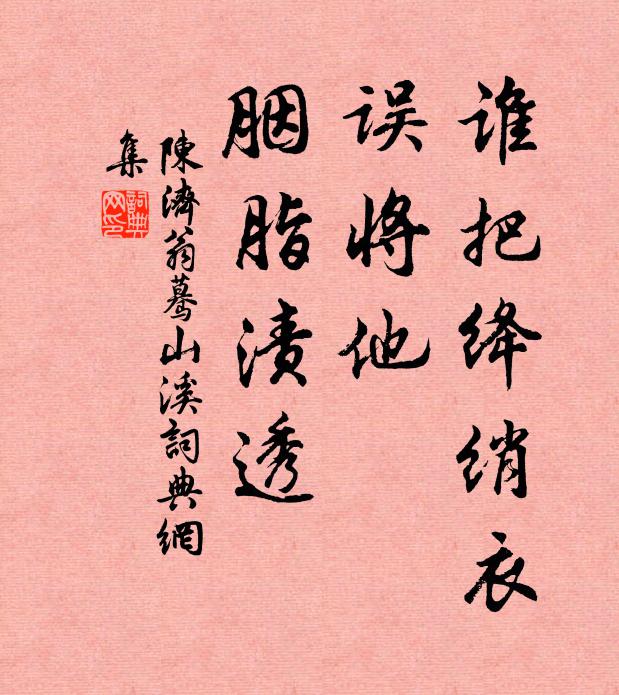 谁把绛绡衣
误将他
胭脂渍透
陳濟翁蓦山溪詞典網
集
詞典网印